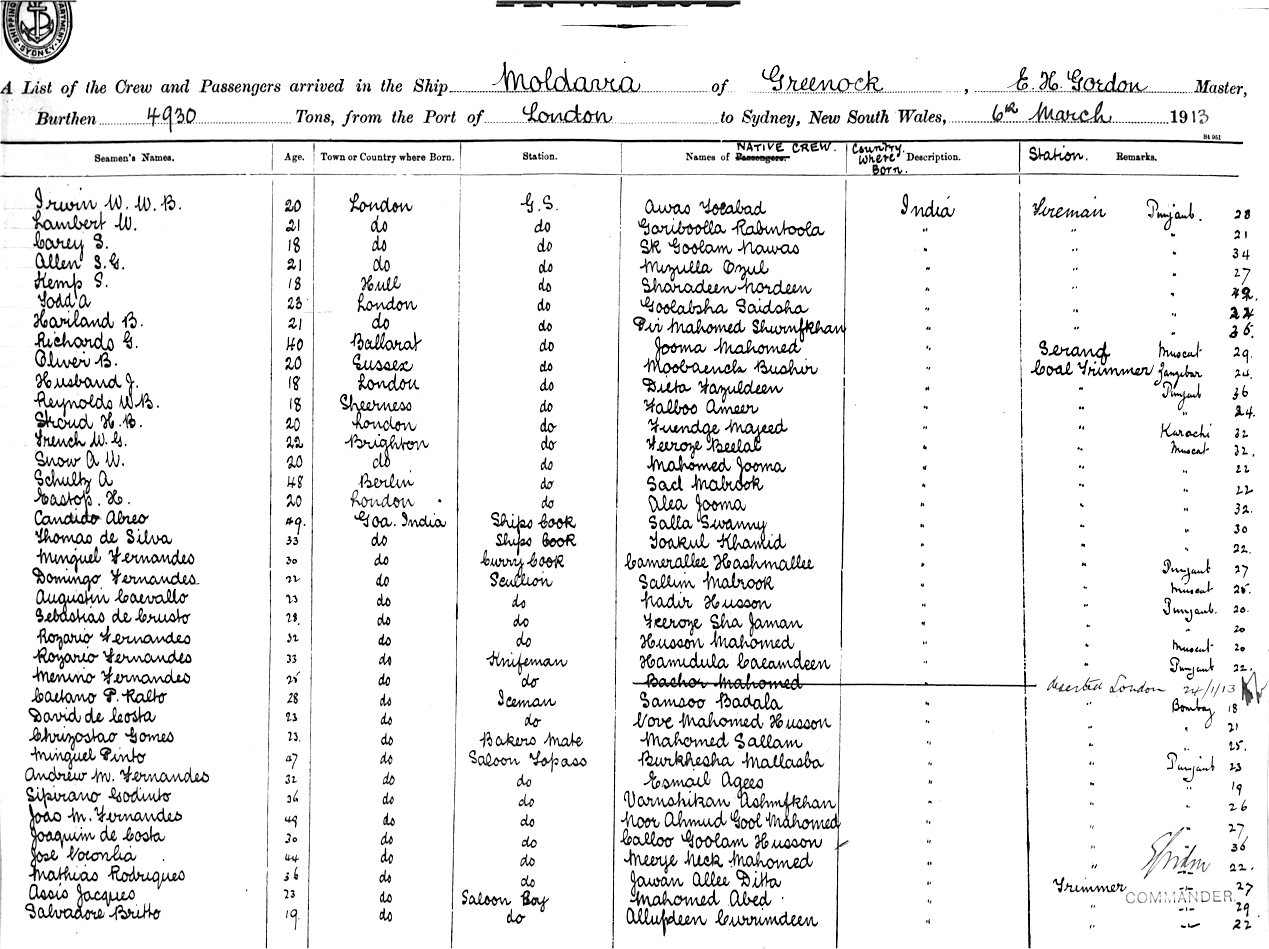 SYDNEY
A List of the Crew and Passengers arrived in the Ship Moldavia of Greenock, E. H. Gordon Master,
Burthen 4930 Tons, from the Port of London to Sydney, New South Wales, 6th March 1913
St 951
Seamen's Names. Age. Town or Country where Born. Station. Names of Passengers. NATIVE CREW. Country Where Born. Description. Station. Remarks.
Irwin W. W. B. 20 London G.S. Awas Tocabad India Fireman Punjaub. 28
Lambert W. 21 do do Gariboolla Rabintoola " " " 21
Carey S. 18 do do Sk Goolam Nawas " " " 34
Allen S. G. 21 do do Mizulla Ozul " " " 27
Kemp S. 18 Hull do Sharadeen Nordeen " " " 42
Todd A 23 London do Goolabsha Saidsha " " "
Harland B. 21 do do Pir Mahomed Shurufkhan " " " 36.
Richards G. 40 Ballarat do Jooma Mahomed " Serang Muscat 29.
Oliver B. 20 Sussex do Moobaench Bushir " Coal Trimmer Zanzibar 24.
Husband J. 18 London do Ditta Fazuldeen " " Punjaub 36
Reynolds W. B. 18 Sheerness do Falboo Ameer " " " 24.
Stroud H. B. 20 London do Fuendge Majeed " " Karachi 32
French W. G. 22 Brighton do Feeroze Beelal " " Muscat 32.
Snow A W. 20 do do Mahomed Jooma " " " 22
Schultz A 48 Berlin do Sad Mabrook " " " 22
Eastop. H. 20 London do Alea Jooma " " " 32.
Candido Abreo 49. Goa. India Ships Cook Salla Swanny " " " 30
Thomas de Silva 33 do Ships Cook Toakul Khamid " " " 22.
Minguel Fernandes 30 do Curry Cook Camerallee Hashmallee " " Punjaub 27
Domingo Fernandes 22 do Scullion Sallim Mabrook " " Muscat 25.
Augustin Caevallo 23 do do Nadir Husson " " Punjaub. 20.
Sebastias de Crusto 28. do do Feeroze Sha Jaman " " " 20
Rozario Fernandes 32 do do Husson Mahomed " " Muscat 20
Rozario Fernandes 33 do Knifeman Hamidula Caeamdeen " " Punjaub 22.
Menino Fernandes 25 do do Bachor Mahomed deserted London 24/1/13
Caetano P. Ralto 28 do Iceman Samsoo Badala " " Bombay 18
David de Costa 23 do do Vove Mahomed Husson " " " 21
Chrizostao Gomes 23. do Bakers Mate Mahomed Sallam " " " 25.
Minguel Pinto 27 do Saloon Topass Burkhesha Mallasba " " Punjaub 23
Andrew M. Fernandes 32 do do Esmail Agees " " " 19
Sipirano Godinto 26 do do Varnshikan Ashrufkhan " " " 26
Joao M. Fernandes 49 do do Noor Ahmud Gool Mahomed " " " 27
Joaquim de Costa 30 do do Calloo Goolam Husson " " " 36
Jose Voronha 44 do do Meerje Neck Mahomed " " " 22.
Mathias Rodriques 36 do do Jawan Allee Ditta " Trimmer " 27
COMMANDER
Assis Jacques 23 do Saloon Boy Mahomed Abed " " " 29
Salvadore Britto 19. do do Allufdeen Currimdeen " " " 22